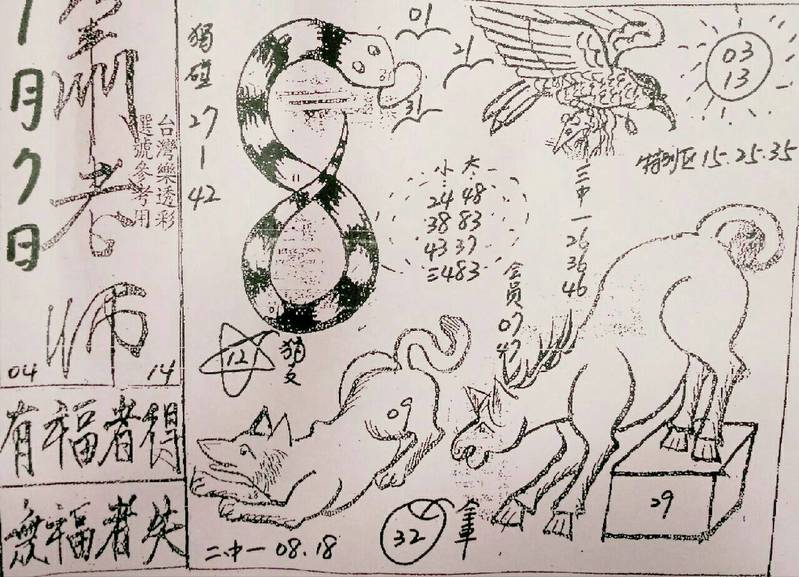 1月7日
蕭老师
台灣樂透彩
選號參考用
04
14
有福者得
無福者失
獨碰 27-42
01
21
31
03
13
特别区 15.25.35
三中一 26 36 46
小 大
24 48
38 83
43 37
三483
会员 07 47
12
09
29
二中一 08.18
32